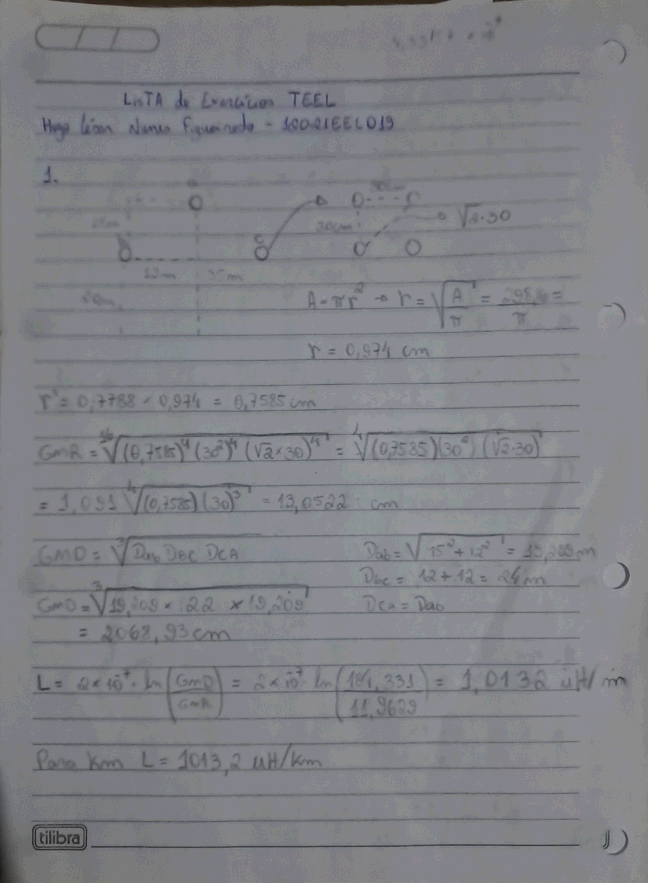 LISTA de Exercícios TEEL
Nunes Figueiredo - 10021EEL019
1.
20cm
√2·30
12m
35m
A = πr² → r = √(A/π) =
r = 0,974 cm
r' = 0,7788 × 0,974 = 0,7585 cm
GMR = ¹⁶√((0,7585)⁴ (30²)⁴ (√2×30)⁴) = ⁴√((0,7585)(30²)(√2·30))
= 1,091 ⁴√((0,7585)(30)³) = 13,0522 cm
GMD = ³√(Dab Dbc Dca) Dab = √(15² + 12²) = 19,209 m
Dbc = 12 + 12 = 24 m
GMD = ³√(19,209 × 22 × 19,209) Dca = Dab
= 2068,93 cm
L = 2×10⁻⁷ · ln(GMD/GMR) = 2×10⁻⁷ · ln(/11,9629) = 1,0132 uH/m
Para Km L = 1013,2 uH/Km
tilibra